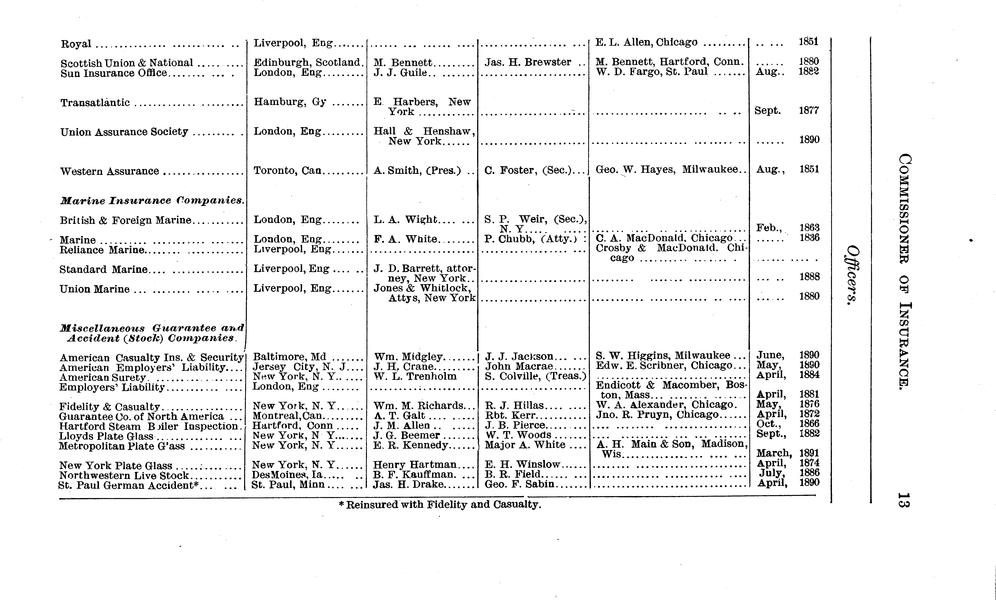 Royal ... Liverpool, Eng....... E. L. Allen, Chicago ......... 1851
Scottish Union & National ..... Edinburgh, Scotland. M. Bennett......... Jas. H. Brewster .. M. Bennett, Hartford, Conn. ...... 1880
Sun Insurance Office........ London, Eng....... J. J. Guile.......... W. D. Fargo, St. Paul ....... Aug.. 1882
Transatlantic .................. Hamburg, Gy ....... E Harbers, New
York ............ Sept. 1877
Union Assurance Society ......... London, Eng......... Hall & Henshaw,
New York...... 1890
Western Assurance ............... Toronto, Can......... A. Smith, (Pres.) .. C. Foster, (Sec.)... Geo. W. Hayes, Milwaukee.. Aug., 1851
Marine Insurance Companies.
British & Foreign Marine.......... London, Eng........ L. A. Wight.... ... S. P. Weir, (Sec.),
N. Y..... Feb., 1863
Marine ... London, Eng........ F. A. White........ P. Chubb, (Atty.) : C. A. MacDonald, Chicago... ...... 1836
Reliance Marine....... Liverpool, Eng...... Crosby & MacDonald. Chi-
cago ...
Standard Marine.... Liverpool, Eng .... .. J. D. Barrett, attor-
ney, New York.. 1888
Union Marine ... Liverpool, Eng....... Jones & Whitlock,
Attys, New York 1880
Miscellaneous Guarantee and
Accident (Stock) Companies.
American Casualty Ins. & Security Baltimore, Md ....... Wm. Midgley....... J. J. Jackson... ... S. W. Higgins, Milwaukee ... June, 1890
American Employers' Liability.... Jersey City, N. J.... J. H. Crane......... John Macrae....... Edw. E. Scribner, Chicago... May, 1890
American Surety. ... New York, N. Y.. ..... W. L. Trenholm S. Colville, (Treas.) April, 1884
Employers' Liability............. London, Eng ........ Endicott & Macomber, Bos-
ton, Mass... April, 1881
Fidelity & Casualty............... New York, N. Y...... Wm. M. Richards... R. J. Hillas.... .... W. A. Alexander, Chicago. May, 1876
Guarantee Co. of North America ... Montreal,Can........ A. T. Galt .......... Rbt. Kerr........... Jno. R. Pruyn, Chicago..... April, 1872
Hartford Steam Boiler Inspection. Hartford, Conn ..... J. M. Allen .. ..... J. B. Pierce........ Oct., 1866
Lloyds Plate Glass ... New York, N Y...... J. G. Beemer ...... W. T. Woods ...... Sept., 1882
Metropolitan Plate Glass ... New York, N. Y...... E. R. Kennedy..... Major A. White .... A. H. Main & Son, Madison,
Wis... March, 1891
New York Plate Glass ............ New York, N. Y...... Henry Hartman.... E. H. Winslow..... April, 1874
Northwestern Live Stock.......... DesMoines, Ia....... B. F. Kauffman. ... B. R. Field........ July, 1886
St. Paul German Accident*... ... St. Paul, Minn .... ... Jas. H. Drake....... Geo. F. Sabin....... April, 1890
* Reinsured with Fidelity and Casualty.
Officers.
COMMISSIONER OF INSURANCE. 13